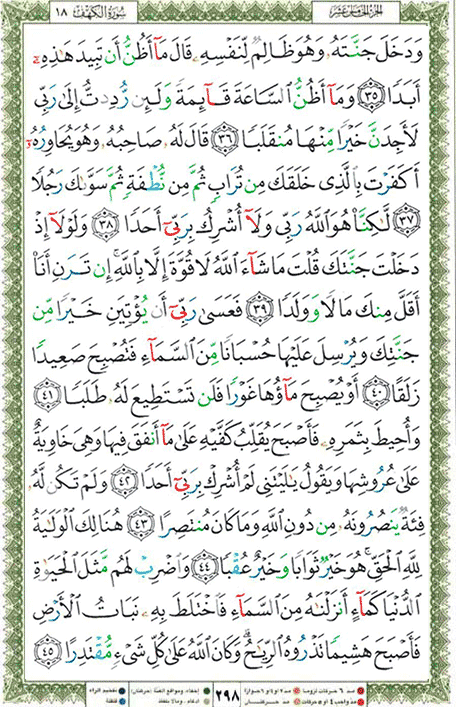 سُورَةُ الكَهْفِ ١٨
الجزء الخامس عشر
وَدَخَلَ جَنَّتَهُۥ وَهُوَ ظَالِمٌ لِّنَفْسِهِۦ قَالَ مَآ أَظُنُّ أَن تَبِيدَ هَٰذِهِۦٓ
أَبَدًا ٣٥ وَمَآ أَظُنُّ ٱلسَّاعَةَ قَآئِمَةً وَلَئِن رُّدِدتُّ إِلَىٰ رَبِّى
لَأَجِدَنَّ خَيْرًا مِّنْهَا مُنقَلَبًا ٣٦ قَالَ لَهُۥ صَاحِبُهُۥ وَهُوَ يُحَاوِرُهُۥٓ
أَكَفَرْتَ بِٱلَّذِى خَلَقَكَ مِن تُرَابٍ ثُمَّ مِن نُّطْفَةٍ ثُمَّ سَوَّىٰكَ رَجُلًا
٣٧ لَّٰكِنَّا۠ هُوَ ٱللَّهُ رَبِّى وَلَآ أُشْرِكُ بِرَبِّىٓ أَحَدًا ٣٨ وَلَوْلَآ إِذْ
دَخَلْتَ جَنَّتَكَ قُلْتَ مَا شَآءَ ٱللَّهُ لَا قُوَّةَ إِلَّا بِٱللَّهِ ۚ إِن تَرَنِ أَنَا۠
أَقَلَّ مِنكَ مَالًا وَوَلَدًا ٣٩ فَعَسَىٰ رَبِّىٓ أَن يُؤْتِيَنِ خَيْرًا مِّن
جَنَّتِكَ وَيُرْسِلَ عَلَيْهَا حُسْبَانًا مِّنَ ٱلسَّمَآءِ فَتُصْبِحَ صَعِيدًا
زَلَقًا ٤٠ أَوْ يُصْبِحَ مَآؤُهَا غَوْرًا فَلَن تَسْتَطِيعَ لَهُۥ طَلَبًا ٤١
وَأُحِيطَ بِثَمَرِهِۦ فَأَصْبَحَ يُقَلِّبُ كَفَّيْهِ عَلَىٰ مَآ أَنفَقَ فِيهَا وَهِىَ خَاوِيَةٌ
عَلَىٰ عُرُوشِهَا وَيَقُولُ يَٰلَيْتَنِى لَمْ أُشْرِكْ بِرَبِّىٓ أَحَدًا ٤٢ وَلَمْ تَكُن لَّهُۥ
فِئَةٌ يَنصُرُونَهُۥ مِن دُونِ ٱللَّهِ وَمَا كَانَ مُنتَصِرًا ٤٣ هُنَالِكَ ٱلْوَلَٰيَةُ
لِلَّهِ ٱلْحَقِّ ۚ هُوَ خَيْرٌ ثَوَابًا وَخَيْرٌ عُقْبًا ٤٤ وَٱضْرِبْ لَهُم مَّثَلَ ٱلْحَيَوٰةِ
ٱلدُّنْيَا كَمَآءٍ أَنزَلْنَٰهُ مِنَ ٱلسَّمَآءِ فَٱخْتَلَطَ بِهِۦ نَبَاتُ ٱلْأَرْضِ
فَأَصْبَحَ هَشِيمًا تَذْرُوهُ ٱلرِّيَٰحُ ۗ وَكَانَ ٱللَّهُ عَلَىٰ كُلِّ شَىْءٍ مُّقْتَدِرًا ٤٥
٢٩٨